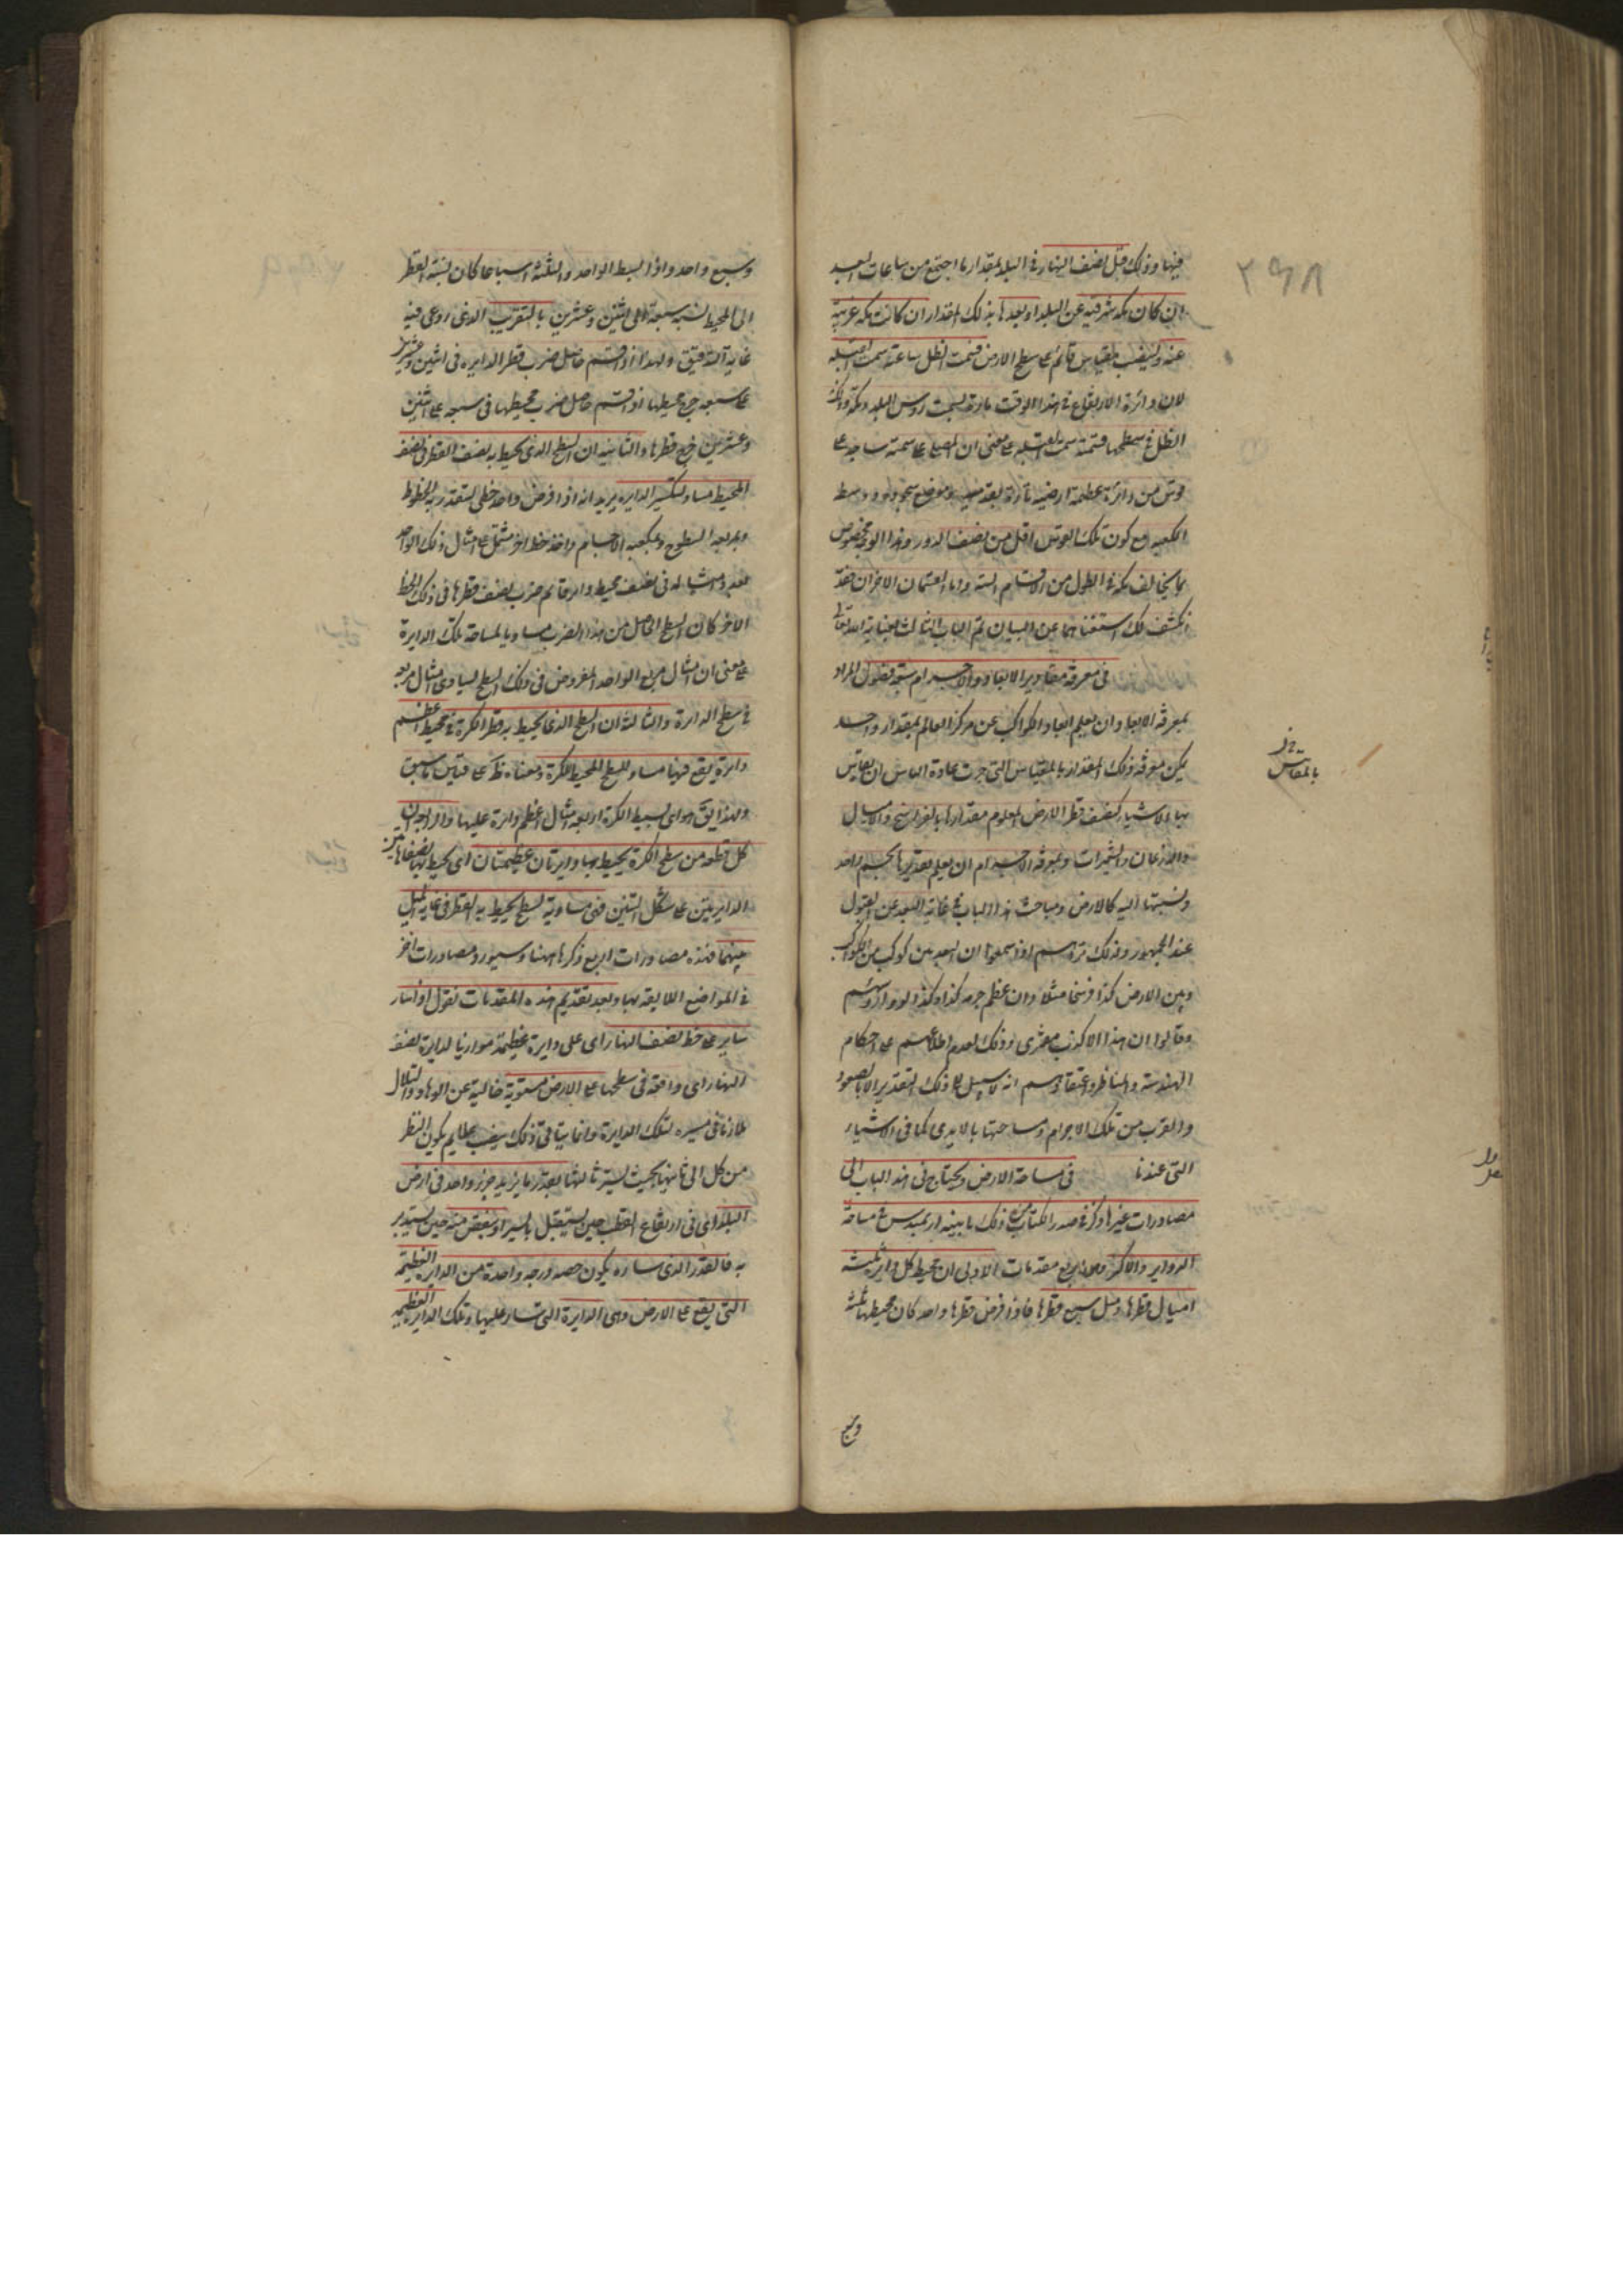 فيها وذلك قبل نصف النهار في البلد بمقدار ما اجتمع من ساعات البعد
ان كان مكة شرقية عن البلد او بعدها بذلك المقدار ان كانت مكة غربية
عنه ولينصب مقياس قائم على سطح الارض فسمت الظل ساعته سمت القبلة
لان دائرة الارتفاع في هذا الوقت مارة بسمت رؤس البلد ومكة
الظل في سطحها فسمته سمت القبلة على معنى ان المصلى على سمته ساجد على
قوس من دائرة عظيمة ارضية مارة بقدميه وموضع سجوده ووسط
الكعبة مع كون تلك القوس اقل من نصف الدور وهذا الوجه مخصوص
بما يخالف مكة في الطول من الاقسام الستة واما القسمان الاخران فقد
انكشف لك استغناهما عن البيان تم الباب الثالث بعناية الله تعالى
في معرفة مقادير الابعاد والاجرام سبعة فصول المراد
بمعرفة الابعاد ان يعلم ابعاد الكواكب عن مركز العالم بمقدار واحد
يمكن معرفة ذلك المقدار بالمقياس التي جرت عادة الناس ان يقاس
بها الاشياء كنصف قطر الارض المعلوم مقدارها بالفراسخ والاميال
والاذرعان والشعيرات وبمعرفة الاجرام ان يعلم تقديرها بجسم واحد
ونسبتها اليه كالارض ومباحث هذا الباب في غاية البعد عن القبول
عند الجمهور ولذلك تراهم اذا سمعوا ان البعد بين كوكب من الكواكب
وبين الارض كذا فرسخا مثلا وان عظم جرمه كذا وكذا لووا رؤسهم
وقالوا ان هذا الا كذب مفترى وذلك لعدم اطلاعهم على احكام
الهندسة والمناظر واعتقادهم انه لا سبيل الى ذلك التقدير الا بالصعود
والقرب من تلك الاجرام ومساحتها بالايدى كما في الاشياء
التي عندنا في مساحة الارض ويحتاج في هذا الباب الى
مصادرات غير ما ذكر في صدر الكتاب من ذلك ما بينه ارشميدس في مساحة
الدواير والاكر وهى اربع مقدمات الاولى ان محيط كل دايرة ثلثة
امثال قطرها ومثل سبع قطرها فاذا فرض قطرها واحد كان محيطها ثلثة
وسبع
٢٩٨
بالمقاس
وسبع واحد واذا بسط الواحد والثلثة اسباعا كان نسبة القطر
الى المحيط نسبة سبعة الى اثنين وعشرين بالتقريب الذى روعى فيه
غاية التدقيق ولهذا اذا قسم حاصل ضرب قطر الدايرة في اثنين وعشرين
على سبعة خرج محيطها واذا قسم حاصل ضرب محيطها في سبعة على اثنين
وعشرين خرج قطرها والثانية ان السطح الذى يحيط به نصف القطر في نصف
المحيط مساو لتكسير الدايرة يريد انه اذا فرض واحد خطى لتقدر به الخطوط
وبمربعه السطوح وبمكعبه الاجسام واخذ خط اخر مشتمل على امثال ذلك الواحد
بعدد امثاله في نصف محيط دايرة ثم ضرب نصف قطرها في ذلك الخط
الاخر كان السطح الحاصل من هذا الضرب مساويا لمساحة تلك الدايرة
على معنى ان امثال مربع الواحد المفروض في ذلك السطح يساوى امثال مربعه
في سطح الدايرة والثالثة ان السطح الذى يحيط به قطر الكرة في محيط اعظم
دايرة يقع فيها مساو للسطح المحيط بالكرة ومعناه ظ على قياس ما سبق
ولهذا يق هو اى بسيط الكرة اربعة امثال اعظم دايرة عليها والرابعة ان
كل قطعة من سطح الكرة يحيط بها دايرتان عظيمتان اى يحيط بها نصفا هاتين
الدايرتين على شكل التنين فهى مساوية لسطح يحيط به القطر في غاية الميل
بينهما فهذه مصادرات اربع ذكرها ههنا وسيورد مصادرات اخر
في المواضع اللايقة بها وبعد تقديم هذه المقدمات نقول اذا سار
ساير على خط نصف النهار اى على دايرة عظيمة موازيا لدايرة نصف
النهار اى واقعة في سطحها على الارض مستوية خالية عن الوهاد والتلال
ملازما في مسيره لتلك الدايرة
من كل الى ثانيها بحيث يستر ثالثها بقدر ما يزيد جزء واحد في ارض
البلد اى في ارتفاع القطب حين يستقبل بالسير او ينقص منه حين يستدبر
به فالقدر الذى ساره يكون حصة درجة واحدة من الدايرة العظيمة
التى يقع على الارض وهى الدايرة التى سار عليها وتلك الدايرة العظيمة